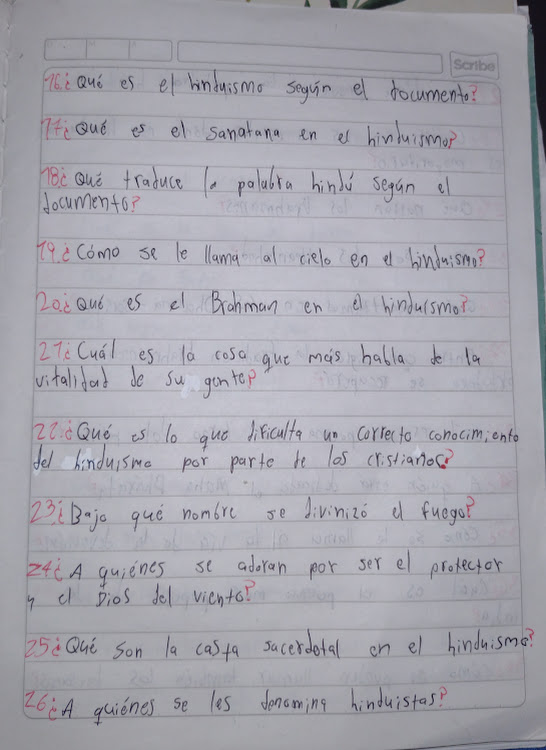 Scribe
16.¿Qué es el hinduismo según el documento?
17.¿Qué es el sanatana en el hinduismo?
18.¿Qué traduce la palabra hindú según el
documento?
19.¿Cómo se le llama al cielo en el hinduismo?
20.¿Qué es el Brahman en el hinduismo?
21.¿Cuál es la cosa que más habla de la
vitalidad de su gente?
22.¿Qué es lo que dificulta un correcto conocimiento
del hinduismo por parte de los cristianos?
23.¿Bajo qué nombre se divinizó el fuego?
24.¿A quiénes se adoran por ser el protector
y el Dios del viento?
25.¿Qué son la casta sacerdotal en el hinduismo?
26.¿A quiénes se les denomina hinduistas?